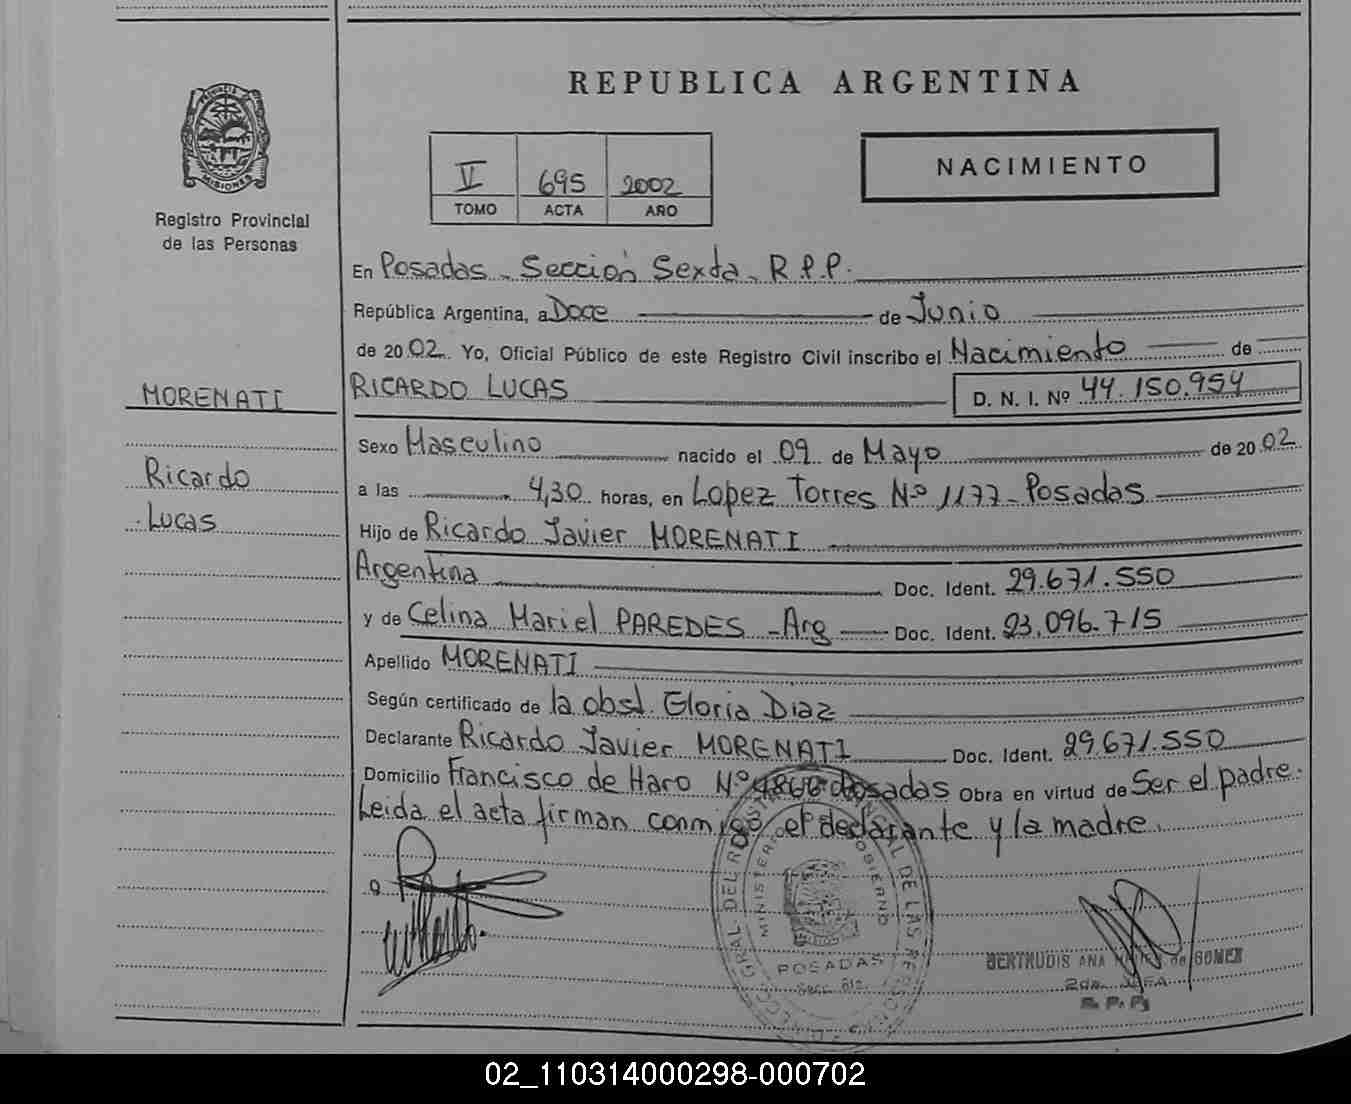 REPUBLICA ARGENTINA
PROVINCIA DE
MISIONES
Registro Provincial
de las Personas
V 695 2002
TOMO ACTA AÑO
NACIMIENTO
En Posadas - Sección Sexta - R.P.P.
República Argentina, a Doce de Junio
de 2002. Yo, Oficial Público de este Registro Civil inscribo el Nacimiento de
MORENATI
Ricardo
Lucas
RICARDO LUCAS D. N. I. Nº 44.150.954
Sexo Masculino nacido el 09 de Mayo de 2002
a las 4,30 horas, en Lopez Torres Nº 1177 - Posadas
Hijo de Ricardo Javier MORENATI
Argentina Doc. Ident. 29.671.550
y de Celina Mariel PAREDES - Arg Doc. Ident. 23.096.715
Apellido MORENATI
Según certificado de la obst. Gloria Diaz
Declarante Ricardo Javier MORENATI Doc. Ident. 29.671.550
Domicilio Francisco de Haro Nº Posadas Obra en virtud de Ser el padre.
Leida el acta firman conmigo el declarante y la madre.
MINISTERIO GOBIERNO
POSADAS
BERTRUDIS ANA de GOMEZ
2da. JEFA
R. P. P.
02_110314000298-000702